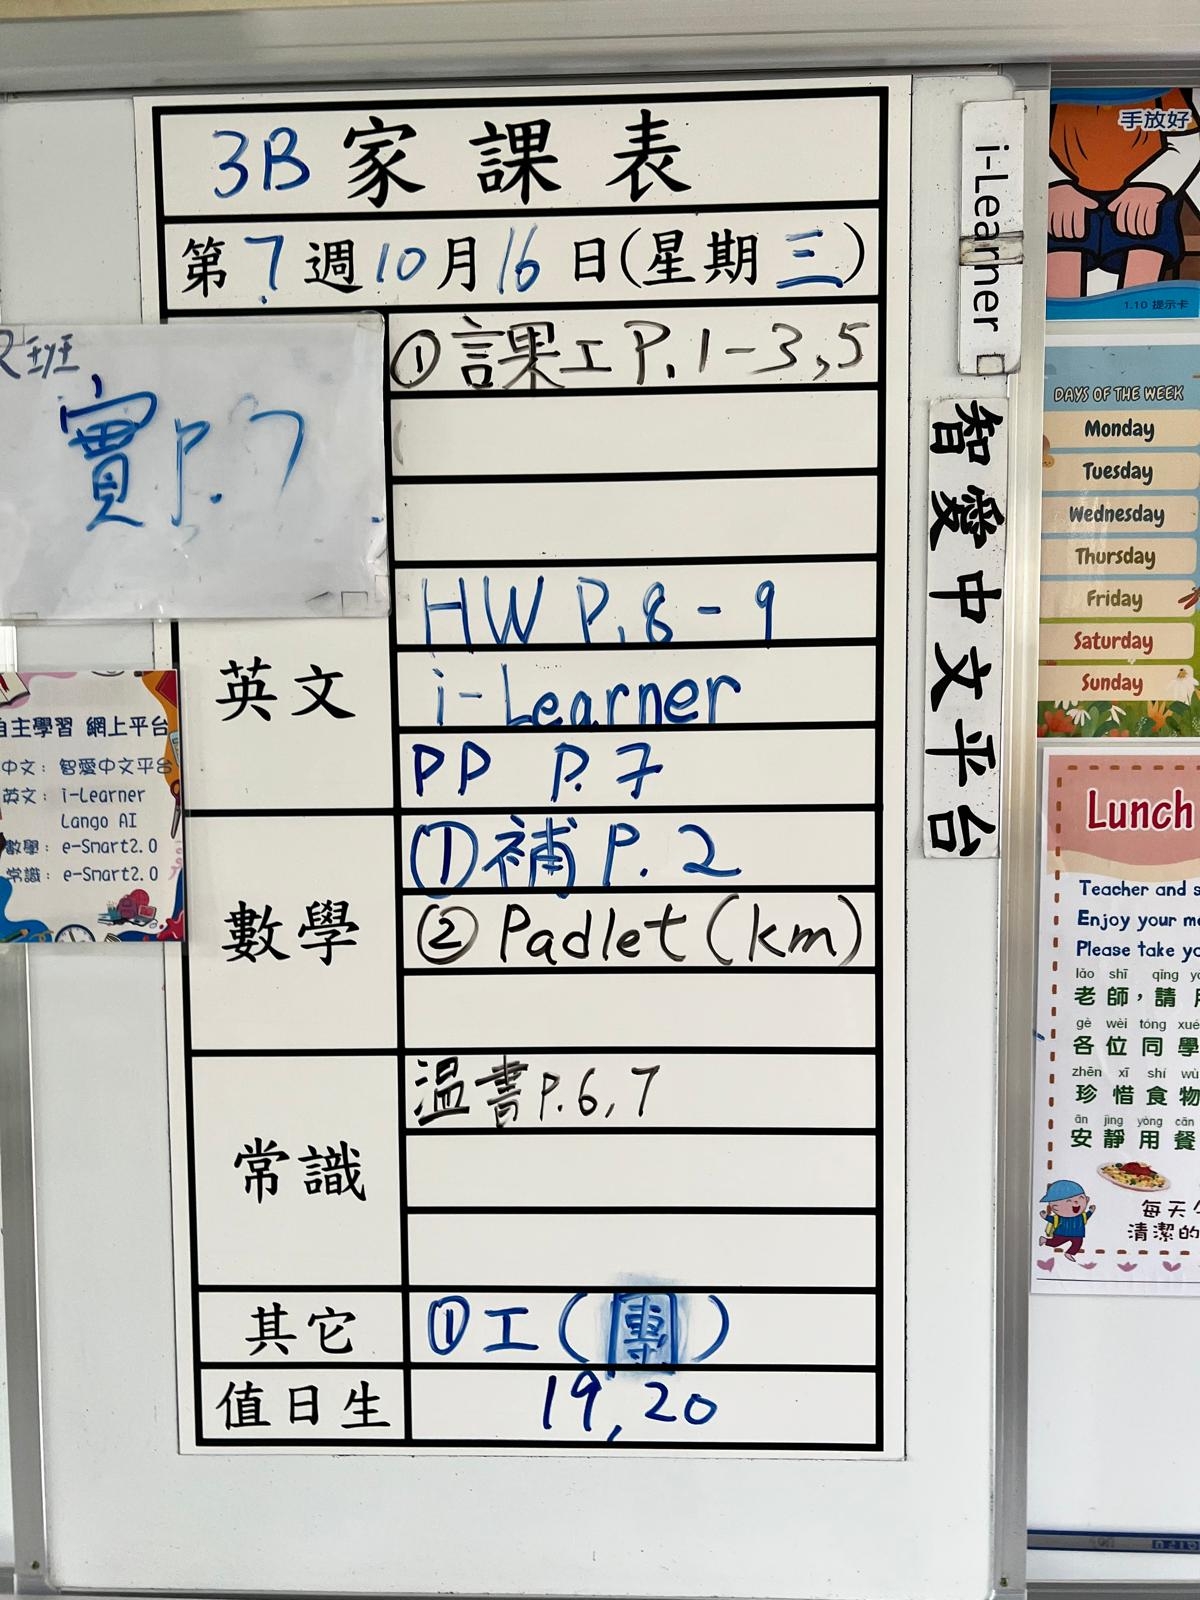 3B 家課表
第7週10月16日(星期三)
①課工P.1-3,5
R班
實P.7
英文
HW P.8-9
i-Learner
PP P.7
數學
①補P.2
②Padlet(km)
常識
溫書P.6,7
其它
①工(團)
值日生
19,20
自主學習 網上平台
中文: 智愛中文平台
英文: i-Learner
Lango AI
數學: e-Smart2.0
常識: e-Smart2.0
i-Learner
智愛中文平台
手放好
1.10 提示卡
DAYS OF THE WEEK
Monday
Tuesday
Wednesday
Thursday
Friday
Saturday
Sunday
Lunch
Teacher and
Enjoy your
Please take
lǎo shī qǐng
老師，請
gè wèi tóng xué
各位同學
zhēn xī shí wù
珍惜食物
ān jìng yòng cān
安靜用餐
每天
清潔的